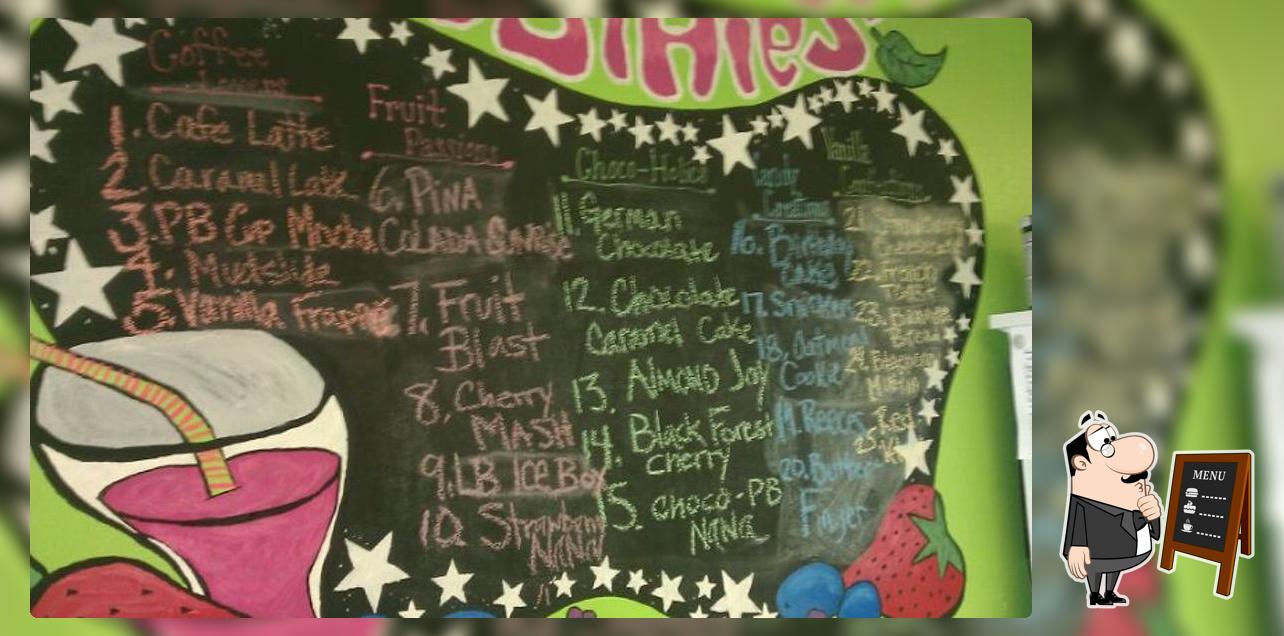 Coffee
Lovers
1. Cafe Latte
2. Caramel Latte
3. PB Cup Mocha
4. Mudslide
5. Vanilla Frappe
Fruit
Passions
6. PINA
COLADA SUNRISE
7. Fruit
Blast
8. Cherry
MASH
9. LB ICE Box
10. Strawberry
NANA
Choco-Holics
11. German
Chocolate
12. Chocolate
Caramel Cake
13. Almond Joy
14. Black Forest
cherry
15. CHOCO-PB
NANA
Candy
Creations
16. Birthday
Cake
17. Snickers
18. Oatmeal
Cookie
19. Reeces
20. Butter
Finger
Vanilla
21.
22. French
23.
24.
Muffin
25. Red
MENU